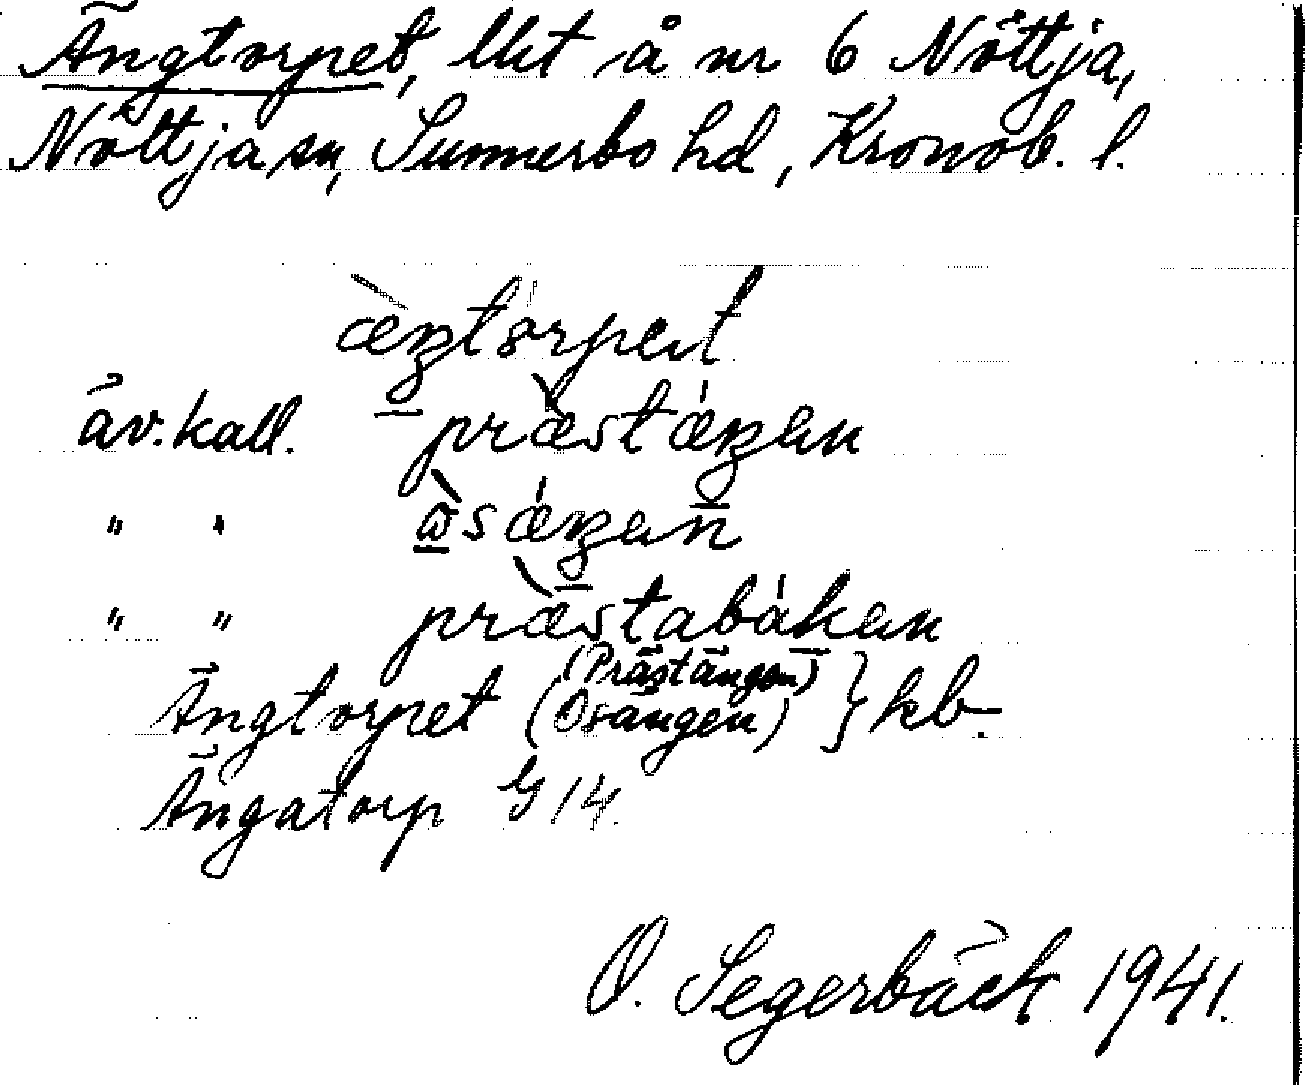 Ängtorpet, lht å nr 6 Nöttja,
Nöttja sn, Sunnerbo hd, Kronob. l.
æ̀ŋtorpet
äv. kall. præ̀stǽŋen
" " ɷ̀sǽŋen
" " præ̀stabáken
Ängtorpet (Osängen) (Prästängen) } kb.
Ängatorp G 14.
O. Segerbäck 1941.